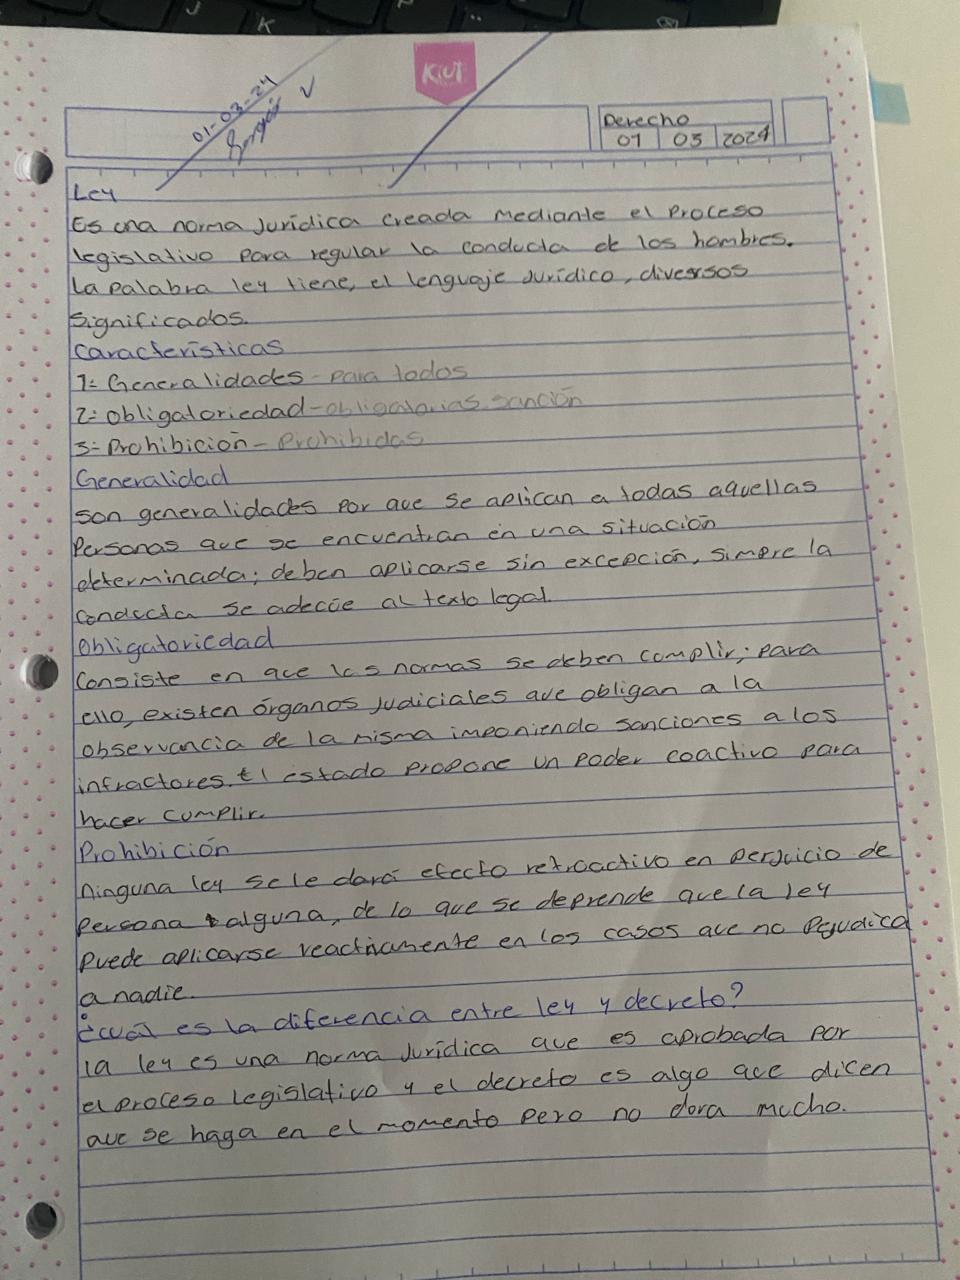 J
K
P
Kiut
01-03-24
Derecho
01 03 2024
Ley
Es una norma Jurídica creada mediante el Proceso
legislativo para regular la conducta de los hombres.
la palabra ley tiene, el lenguaje Jurídico, diversos
significados.
Características
1= Generalidades - para todos
2= Obligatoriedad - obligatorias. sanción
3= Prohibición - Prohibidas
Generalidad
son generalidades por que se aplican a todas aquellas
personas que se encuentran en una situación
determinada; deben aplicarse sin excepción, simpre la
conducta se adecúe al texto legal.
Obligatoriedad
Consiste en que las normas se deben cumplir; para
ello, existen órganos Judiciales que obligan a la
observancia de la misma imponiendo sanciones a los
infractores. El estado propone un poder coactivo para
hacer cumplir.
Prohibición
Ninguna ley se le dará efecto retroactivo en perjuicio de
persona alguna, de lo que se deprende que la ley
puede aplicarse reactivamente en los casos que no Pejudica
a nadie.
¿Cuál es la diferencia entre ley y decreto?
la ley es una norma Jurídica que es aprobada por
el proceso legislativo y el decreto es algo que dicen
que se haga en el momento pero no dora mucho.